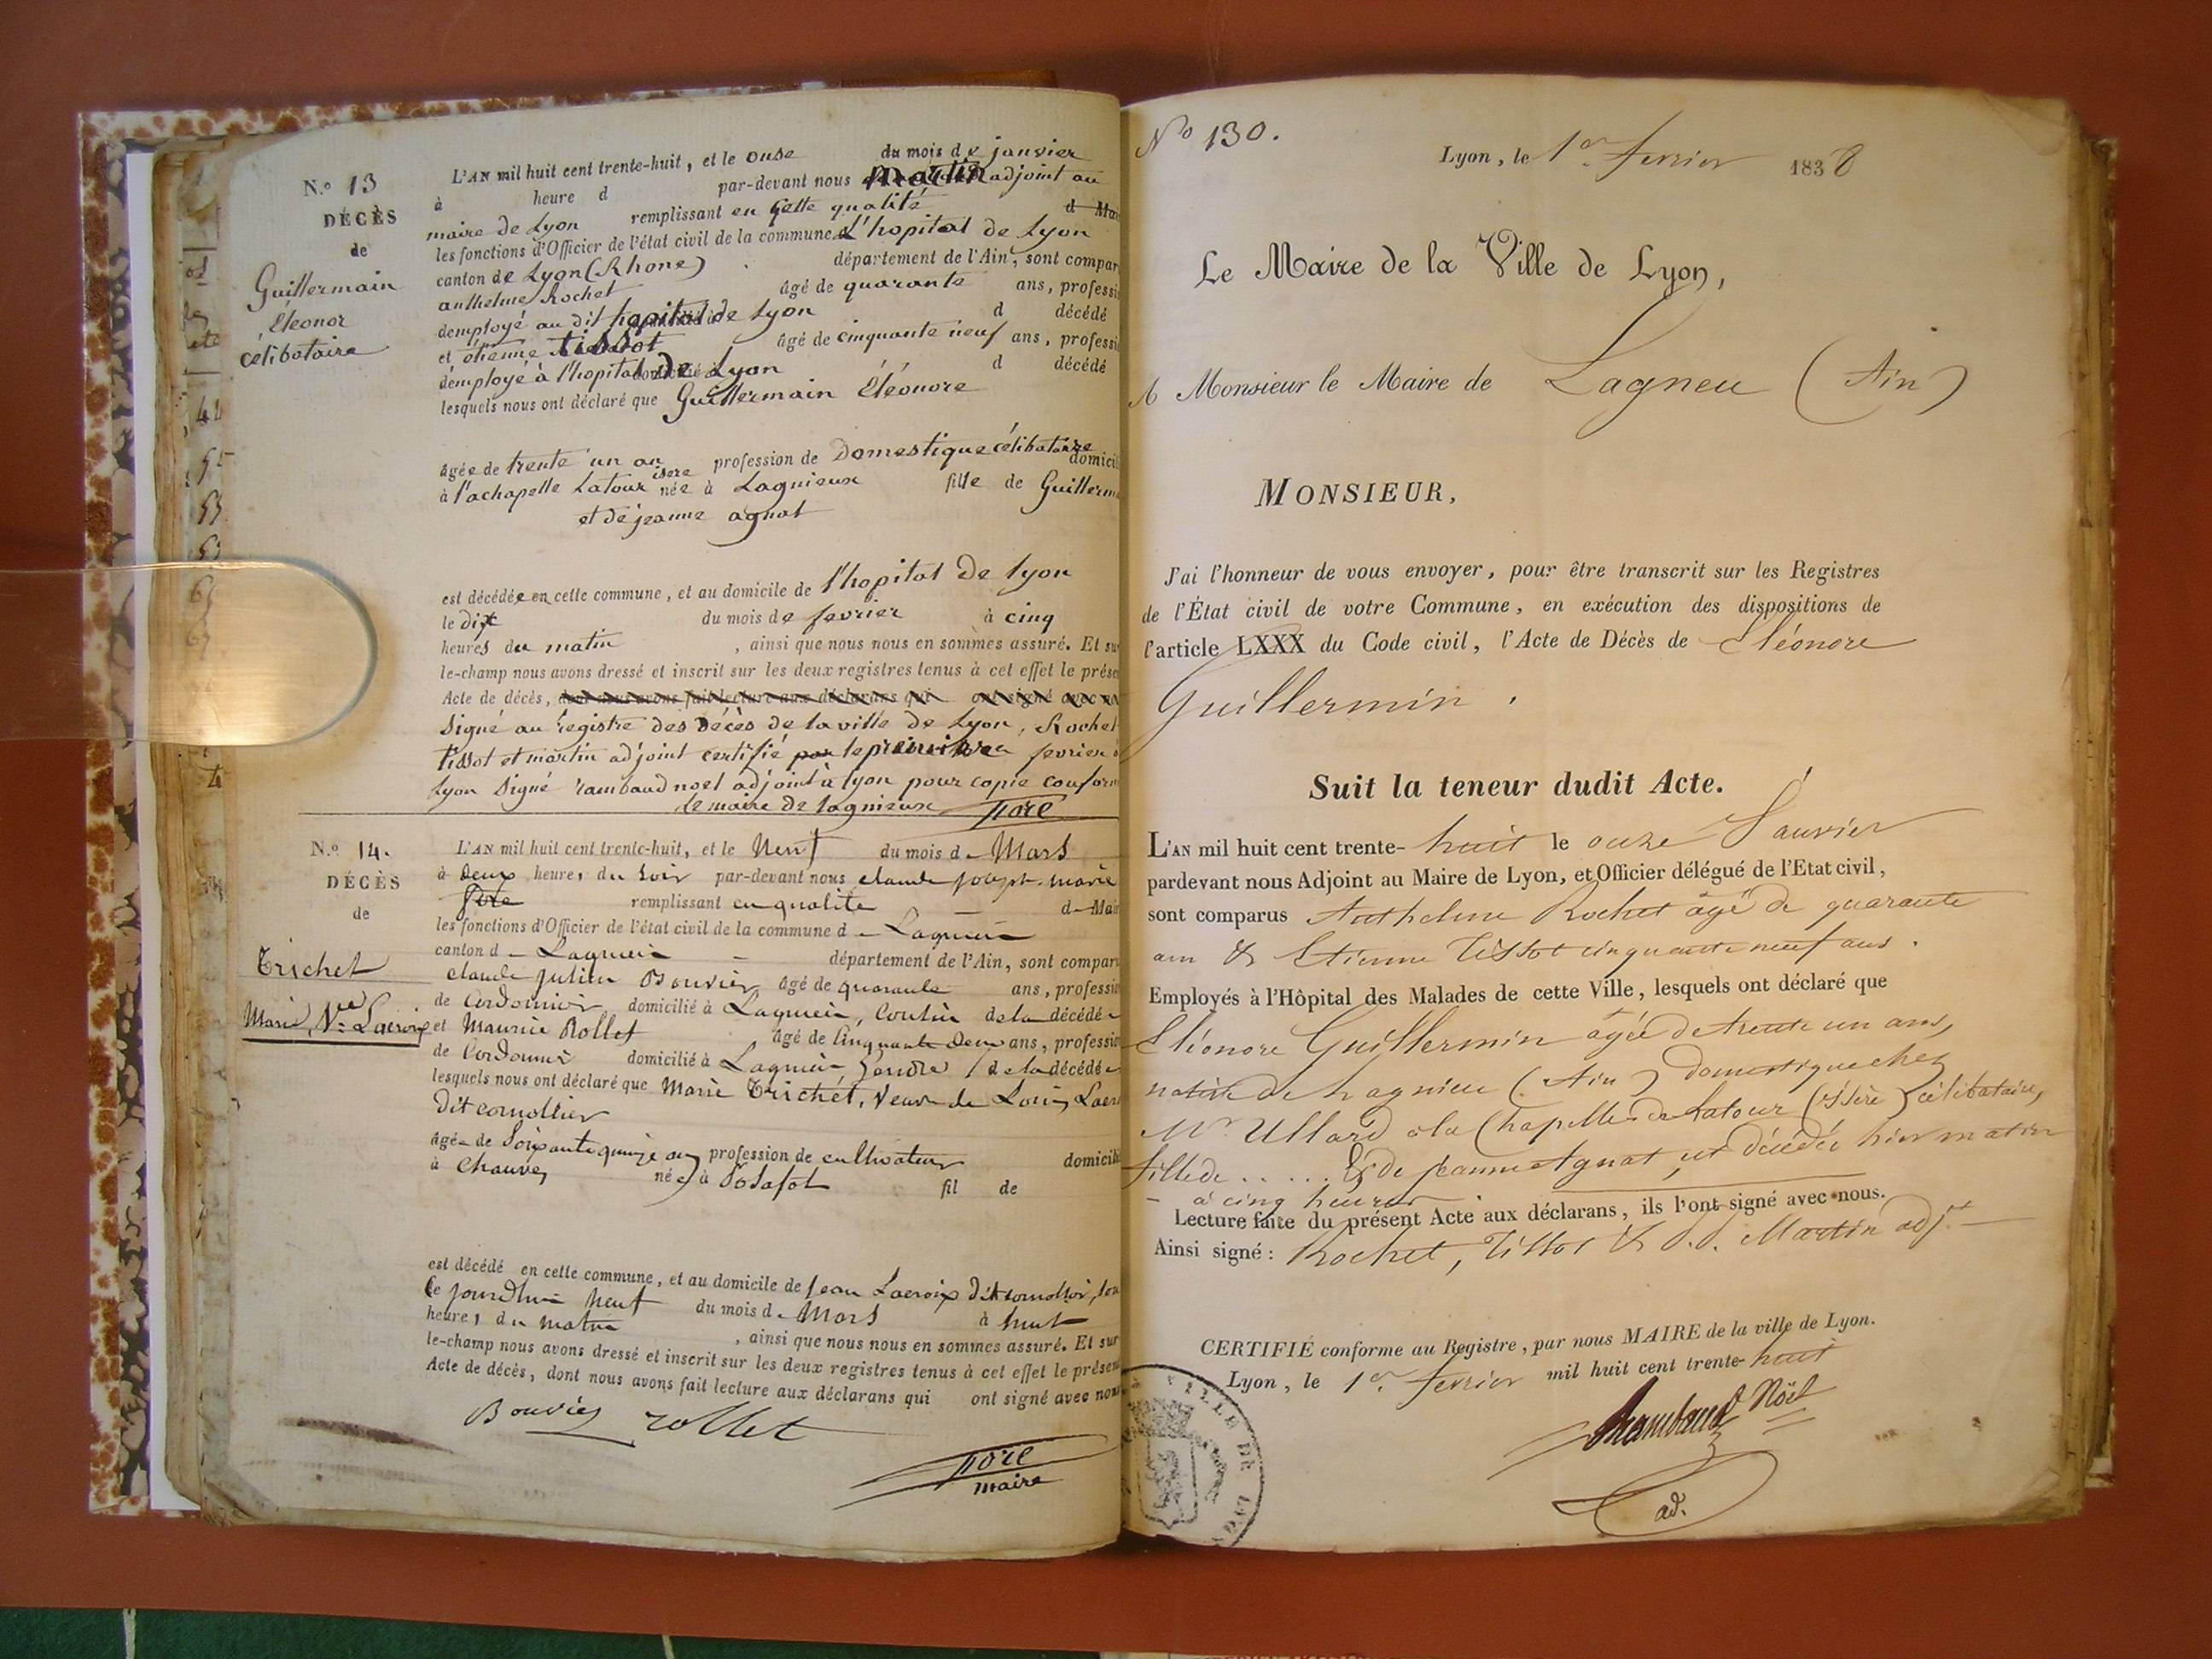 N.º 13
DÉCÈS
de
Guillermain
Éléonor
célibataire
L'AN mil huit cent trente-huit, et le onse du mois de janvier
à heure d par-devant nous Martin adjoint au
maire de Lyon remplissant en cette qualité d Mai
les fonctions d'Officier de l'état civil de la commune d l'hopital de Lyon
canton de Lyon (Rhone) département de l'Ain, sont compar
anthelme Rochet âgé de quarante ans, professi
demployé au dit hopital de Lyon d décédé
et étienne tissot âgé de cinquante neuf ans, professi
démployé à l'hopital de Lyon d décédé
lesquels nous ont déclaré que Guillermain Éléonore
âgée de trente un an profession de Domestique célibataire domicil
à l'achapelle Latour isere née à Lagnieux fille de Guillerm
et de jeanne agnat
est décédée en cette commune, et au domicile de l'hopital de lyon
le dix du mois de fevrier à cinq
heures du matin , ainsi que nous nous en sommes assuré. Et su
le-champ nous avons dressé et inscrit sur les deux registres tenus à cet effet le prése
Acte de décès, dont nous avons fait lecture aux déclarans qui ont signé avec no
Signé au registre des décès de la ville de Lyon, Rochet
tissot et martin adjoint certifié par le premier fevrier
Lyon Signé rambaud noel adjoint à lyon pour copie conform
le maire de lagnieux Pore
N.º 14.
DÉCÈS
de
Trichet
Marie, Vve Lacroix
L'AN mil huit cent trente-huit, et le Neuf du mois d Mars
à deux heures du Soir par-devant nous claude joseph-marie
Pore remplissant en qualité d Mai
les fonctions d'Officier de l'état civil de la commune d Lagnieu
canton d Lagnieu département de l'Ain, sont compar
claude julien Bouvier âgé de quarante ans, professio
de Cordonnier domicilié à Lagnieu, Cousin de la décédée
et Maurice Rollet âgé de Cinquante deux ans, professio
de Cordonnier domicilié à Lagnieu Gendre de la décédée
lesquels nous ont déclaré que Marie Trichet, veuve de Louis Lacr
dit cornollier
âgée de Soixante quinze ans profession de cultivateur domicili
à Chauves née à Posafol fil de
est décédé en cette commune, et au domicile de Jean Lacroix dit cornollier, son
le jourdhui neuf du mois d Mars à huit
heures du matin , ainsi que nous nous en sommes assuré. Et sur
le-champ nous avons dressé et inscrit sur les deux registres tenus à cet effet le présen
Acte de décès, dont nous avons fait lecture aux déclarans qui ont signé avec nou
Bouvier rollet
Pore
maire
No 130.
Lyon, le 1er. fevrier 1838
Le Maire de la Ville de Lyon,
A Monsieur le Maire de Lagneu (Ain)
MONSIEUR,
J'ai l'honneur de vous envoyer, pour être transcrit sur les Registres
de l'État civil de votre Commune, en exécution des dispositions de
l'article LXXX du Code civil, l'Acte de Décès de Eléonore
Guillermin.
Suit la teneur dudit Acte.
L'AN mil huit cent trente-huit le onze Janvier
pardevant nous Adjoint au Maire de Lyon, et Officier délégué de l'Etat civil,
sont comparus Anthelme Rochet âgé de quarante
ans & Etienne Tissot cinquante neuf ans.
Employés à l'Hôpital des Malades de cette Ville, lesquels ont déclaré que
Eléonore Guillermin âgée de trente un ans,
native de Lagnieu (Ain) domestique chez
Mr Ullard à la Chapelle de Latour (Isère) célibataire,
fille de ..... & de jeanne Agnat, est décédée hier matin
à cinq heures
Lecture faite du présent Acte aux déclarans, ils l'ont signé avec nous.
Ainsi signé: Rochet, Tissot & J. J. Martin adjt
CERTIFIÉ conforme au Registre, par nous MAIRE de la ville de Lyon.
Lyon, le 1er. fevrier mil huit cent trente-huit
Rambaud Nöel
ad.
VILLE DE LYON